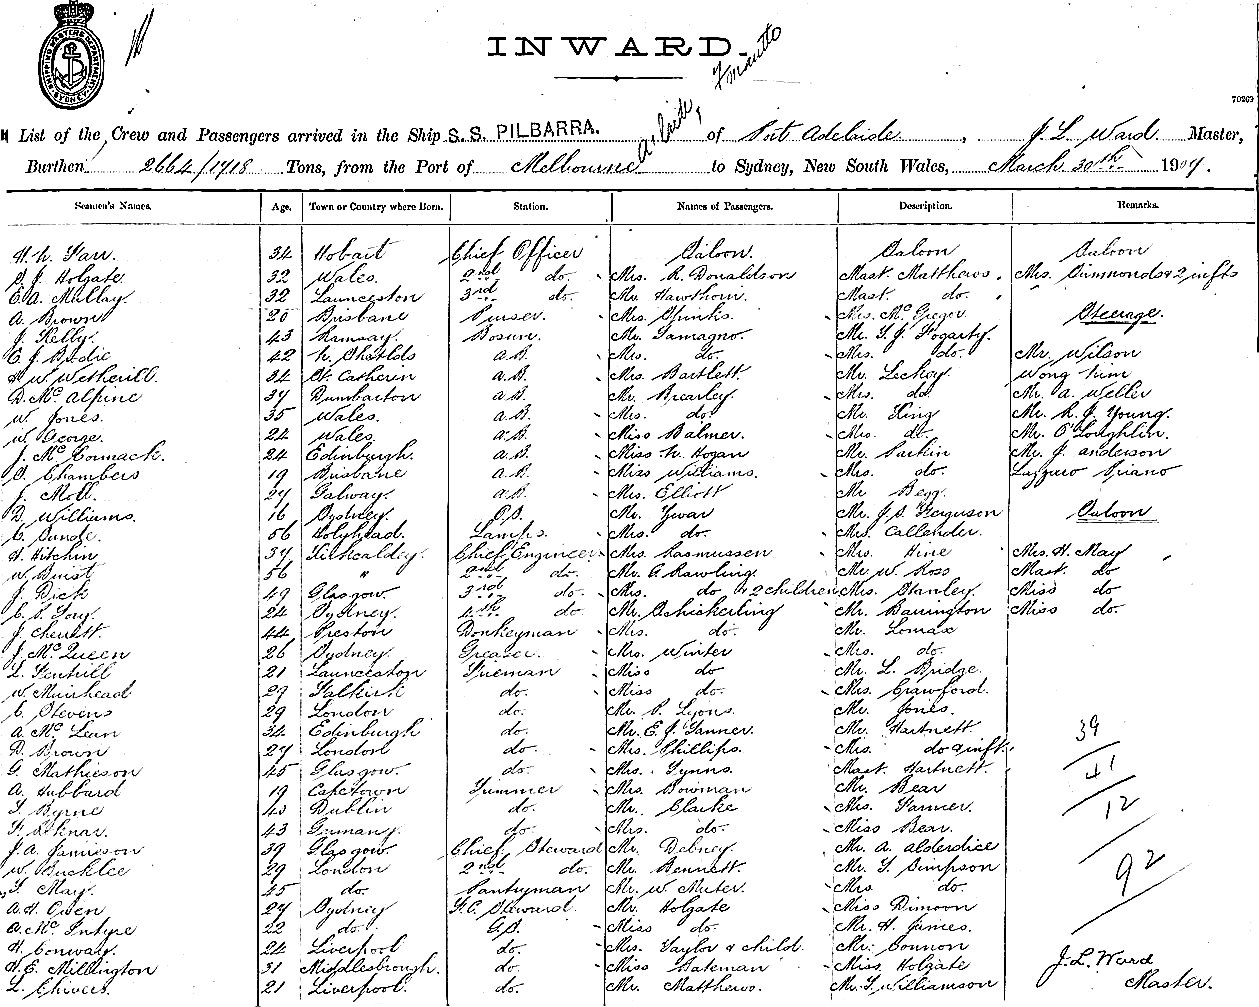 SHIPPING MASTERS DEPARTMENT SYDNEY
INWARD.
Adelaide, Fmantle
70269
List of the Crew and Passengers arrived in the Ship S.S. PILBARRA. of Port Adelaide, J. L. Ward Master,
Burthen 2664/1718 Tons, from the Port of Melbourne to Sydney, New South Wales, March 30th 1907.
Seamen's Names. Age. Town or Country where Born. Station. Names of Passengers. Description. Remarks.
34 Hobart Chief Officer Saloon Saloon Saloon
D. J. Holgate 32 Wales. 2nd do. Mrs. R. Donaldson Mast Matthews. Mrs. Simmonds & 2 infts
E. A. Mullay. 32 Launceston 3rd do. Mr. Hawthorn. Mast. do.
A. Brown 20 Brisbane Purser. Mrs. Spinks. Mrs. McGregor Steerage.
J. Kelly. 43 Ramsay. Bosun. Mr. Tamagno. Mr. T. J. Fogarty.
E. J. Bodie 42 A.B. Mrs. do. Mrs. do. Mr. Wilson
W. Wetherill. 34 St. Catherin A.B. Mrs. Bartlett. Mr. Leckey. Wong Kim
D. McAlpine 34 Dumbarton A.B. Mr. Brearley Mrs. do Mr. A. Weller
W. Jones. 35 Wales. A.B. Mrs. do. Mr. King Mr. R. J. Young.
W. George. 24 Wales. A.B. Miss Balmer. Mrs. do. Mr. O'Loughlin.
J. McCormack. 24 Edinburgh. A.B. Miss N. Hogan Mr. Parkin Mr. J. Anderson
Chambers 19 Brisbane A.B. Miss Williams. Mrs. do.
J. Moll. 27 Galway. A.B. Mrs. Elliott Mr Begg.
D. Williams. 16 Sydney. O.S. Mr. Mr. J. S. Ferguson Saloon
C. Sunde. 56 Holyhead. Lamps. Mrs. do. Mrs. Callender.
H. Hitchin 34 Kirkcaldy. Chief Engineer Mrs. Rasmussen Mrs. Hine Mrs. H. May
W. Buist 56 " 2nd do. Mr. G. Rawling. Mr W. Ross Mast. do
J. Dick 49 Glasgow. 3rd do. Mrs. do & 2 children Mrs. Stanley. Miss do.
24 Sydney. 4th do. Mr. Schickerling Mr. Barrington Miss do.
J. 44 Preston Donkeyman Mrs. do. Mr. Lomax
J. McQueen 26 Sydney. Greaser. Mrs. Winter Mrs. do.
L. 21 Launceston Fireman Miss do Mr. L. Bridge.
W. Muirhead 29 Falkirk do. Miss do. Mrs. Crawford.
C. Stevens 29 London do. Mr. P. Lyons. Mr. Jones.
A. McLean 34 Edinburgh do. Mr. E. J. Tanner. Mr. Hartnett. 39
D. Brown 27 London. do. Mrs. Phillips. Mrs. do & inft.
G. Mathieson 45 Glasgow. do. Mrs. Lynns. Mast. Hartnett. 41
A. Hubbard 19 Capetown Trimmer Mrs. Bowman Mr. Bear
T. Byrne 40 Dublin do. Mr. Clarke Mrs. Farmer. 12
43 Germany. do. Mrs. do. Miss Bear.
J. A. Jamieson 39 Glasgow. Chief Steward Mr. Debney. Mr. A. Alderdice
W. Bucklee 29 London 2nd do. Mr. Bennett. Mr. T. Simpson 92
T. May. 45 do. Pantryman Mr. W. Muter. Mrs do.
A. H. Owen 27 Sydney F.C. Steward. Mr. Holgate Miss Dimoon
A. McIntyre 22 do. G.S. Miss do. Mr. H. James.
H. Conway. 24 Liverpool do. Mrs. Taylor & child. Mr. Connon
H. E. Millington 31 Middlesbrough. do. Miss Bateman Miss. Holgate J. L. Ward
L. Chivers. 21 Liverpool. do. Mr. Matthews. Mr. T. Williamson Master.